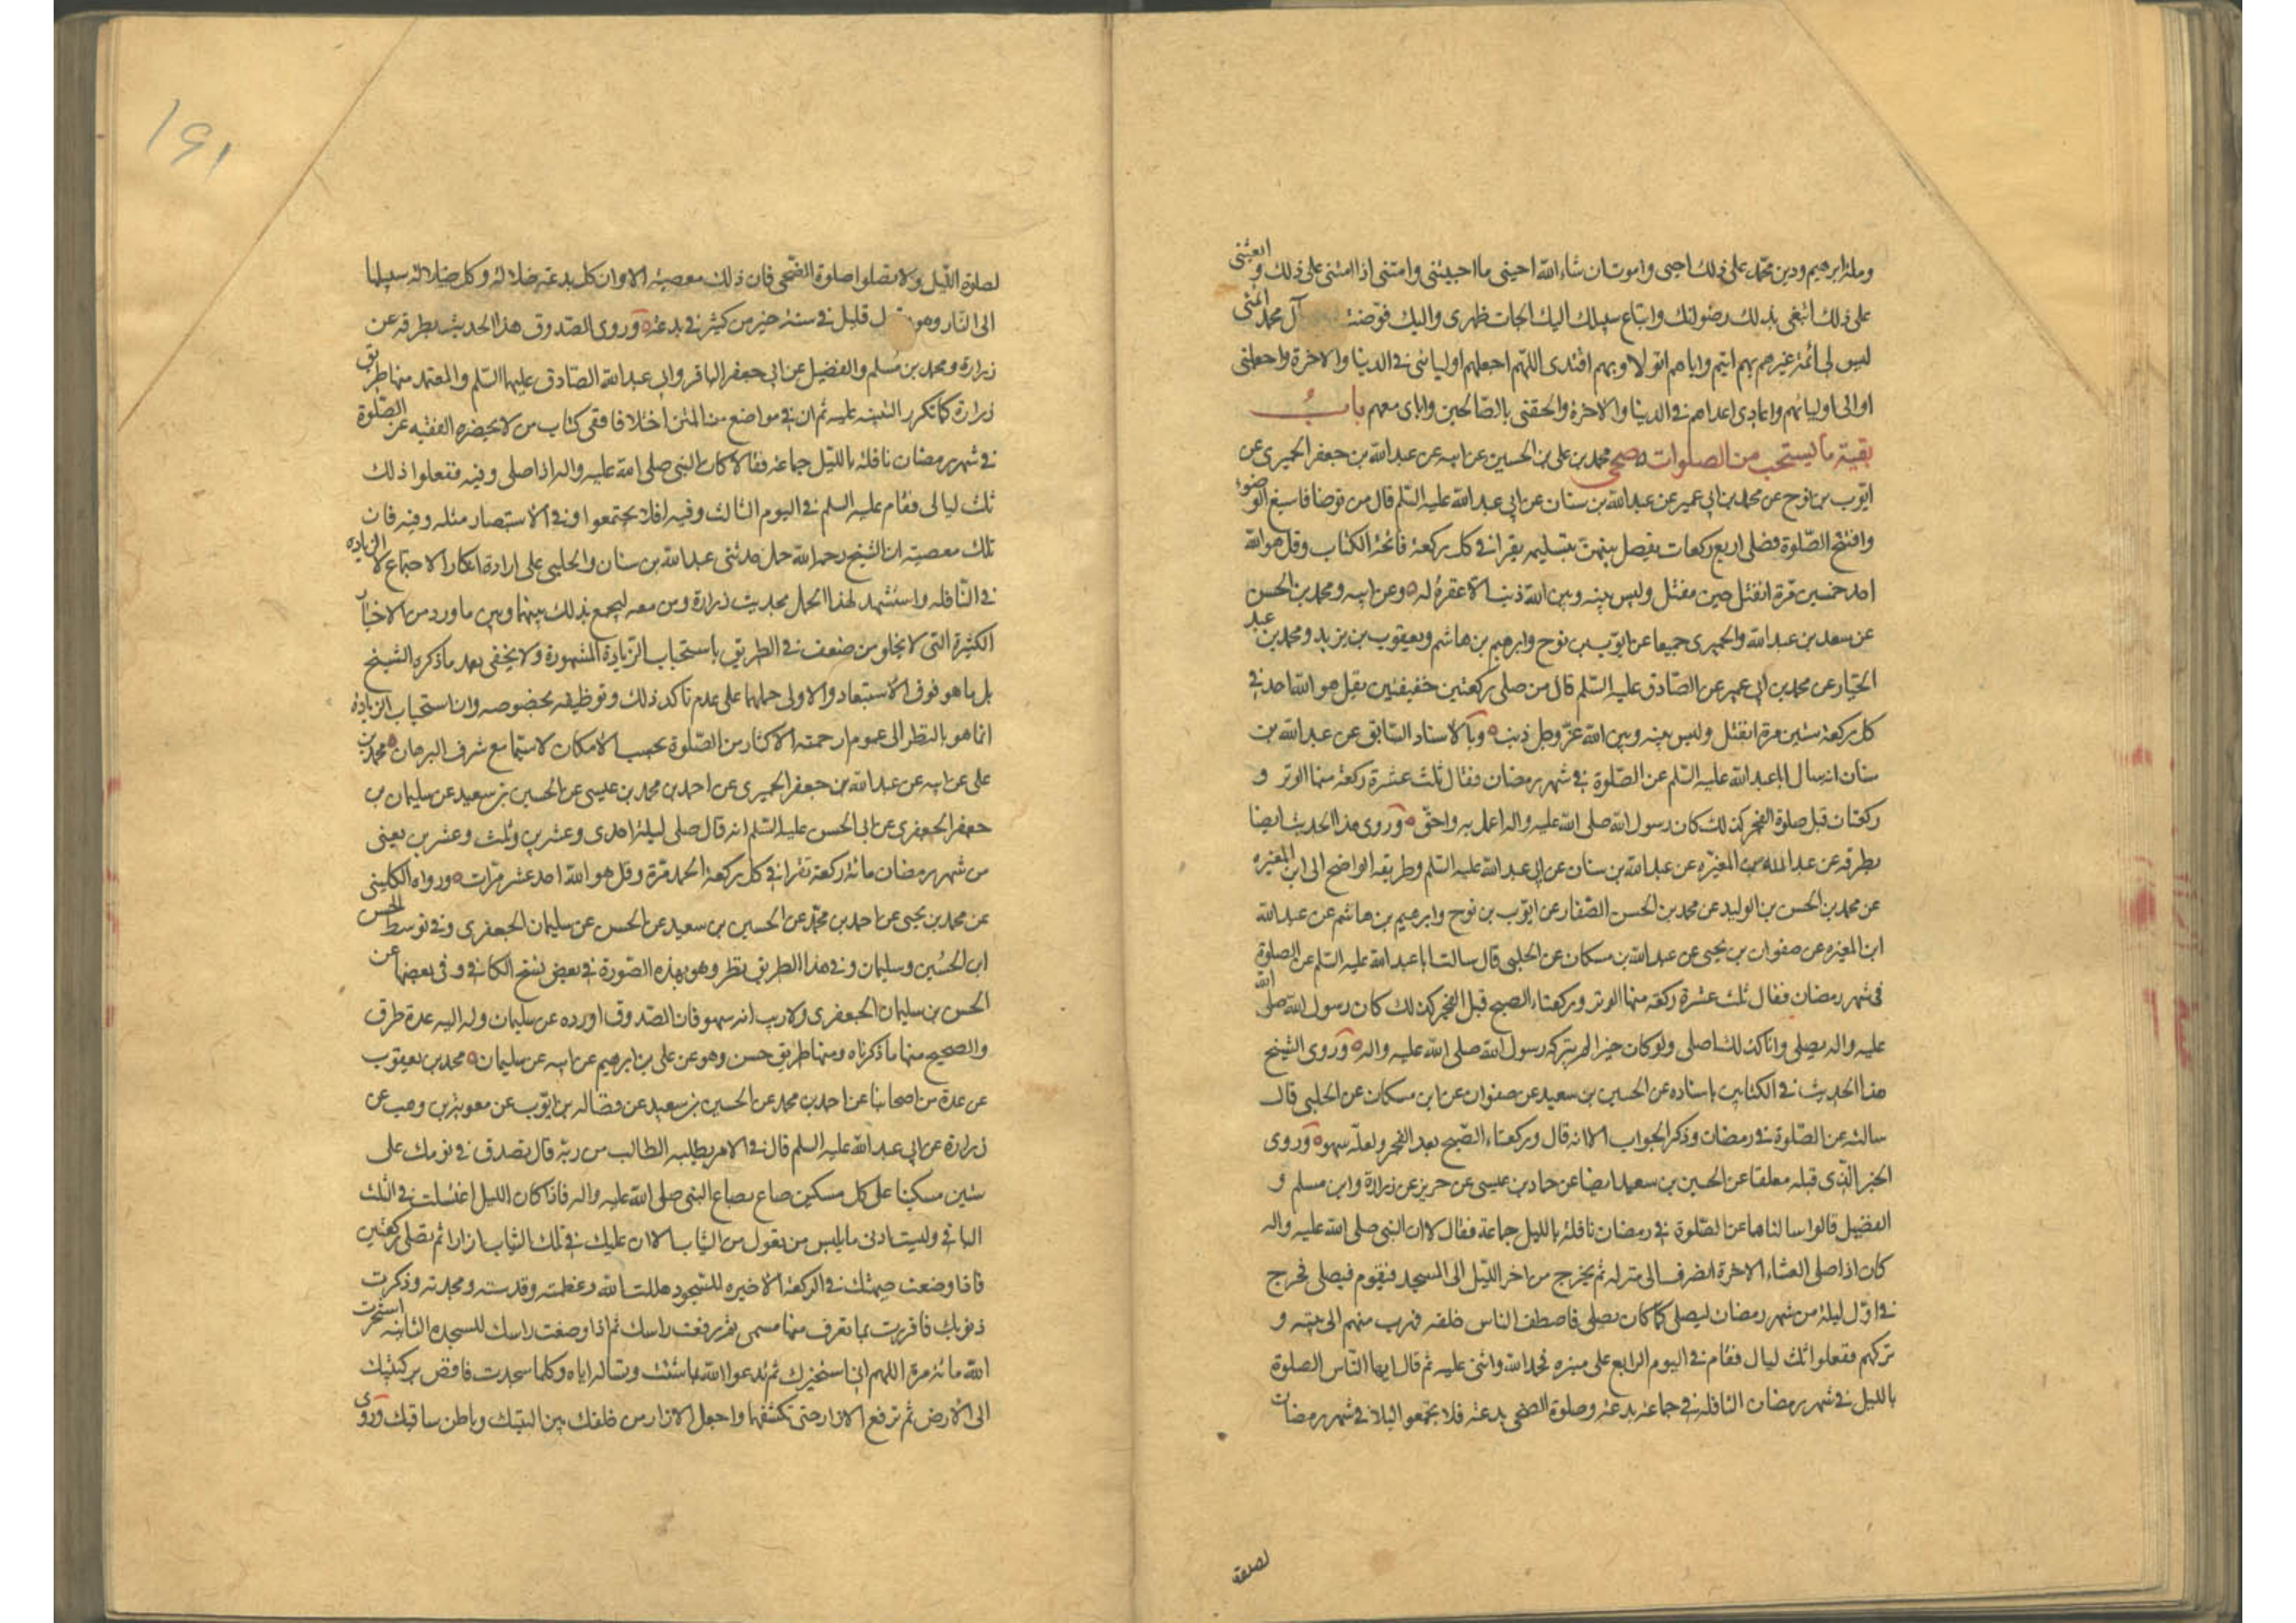 وملة ابرهيم ودين محمد على ذلك احيى واموت ان شاء الله احينى ما احييتنى وامتنى اذا امتنى على ذلك وابعثنى
على ذلك ابتغى بذلك رضوانك واتباع سبيلك اليك الجات ظهرى واليك فوضت آل محمد ائمتى
ليس لى ائمة غيرهم بهم ائتم واياهم اتولا وبهم اقتدى اللهم اجعلهم اوليائى فى الدنيا والاخرة واجعلنى
اوالى اوليائهم واعادى اعداءهم فى الدنيا والاخرة والحقنى بالصالحين واباى معهم باب
بقية ما يستحب من الصلوات صحى محمد بن على بن الحسين عن ابيه عن عبد الله بن جعفر الحميرى عن
ايوب بن نوح عن محمد بن ابى عمير عن عبد الله بن سنان عن ابى عبد الله عليه السلم قال من توضا فاسبغ الوضوء
وافتتح الصلوة فصلى اربع ركعات يفصل بينهن بتسليمه يقرا فى كل ركعة فاتحة الكتاب وقل هو الله
احد خمسين مرة انفتل حين ينفتل وليس بينه وبين الله ذنب الا غفره له وعن ابيه ومحمد بن الحسن
عن سعد بن عبد الله والحميرى جميعا عن ايوب بن نوح وابرهيم بن هاشم ويعقوب بن يزيد ومحمد بن عبد
الجبار عن محمد بن ابى عمير عن الصادق عليه السلم قال من صلى ركعتين خفيفتين بقل هو الله احد فى
كل ركعة ستين مرة انفتل وليس بينه وبين الله عز وجل ذنب وبالاسناد السابق عن عبد الله بن
سنان انه سال ابا عبد الله عليه السلم عن الصلوة فى شهر رمضان فقال ثلث عشرة ركعة منها الوتر و
ركعتان قبل صلوة الفجر كذلك كان رسول الله صلى الله عليه واله اعمل به واحق وروى هذا الحديث ايضا
بطرقه عن عبد الله بن المغيره عن عبد الله بن سنان عن ابى عبد الله عليه السلم وطريقه الواضح الى ابن المغيره
عن محمد بن الحسن بن الوليد عن محمد بن الحسن الصفار عن ايوب بن نوح وابرهيم بن هاشم عن عبد الله
ابن المغيره عن صفوان بن يحيى عن عبد الله بن مسكان عن الحلبى قال سالت ابا عبد الله عليه السلم عن الصلوة
فى شهر رمضان فقال ثلث عشرة ركعة منها الوتر وركعتا الصبح قبل الفجر كذلك كان رسول الله صلى الله
عليه واله يصلى وانا كذلك اصلى ولو كان خيرا لم يتركه رسول الله صلى الله عليه واله وروى الشيخ
هذا الحديث فى الكتابين باسناده عن الحسين بن سعيد عن صفوان عن ابن مسكان عن الحلبى قال
سالته عن الصلوة فى رمضان وذكر الجواب الا انه قال وركعتاء الصبح بعد الفجر ولعله سهوه وروى
الخبر الذى قبله معلقا عن الحسين بن سعيد ايضا عن حماد بن عيسى عن حريز عن زرارة وابن مسلم و
الفضيل قالوا سالناهما عن الصلوة فى رمضان نافلة بالليل جماعة فقال لا ان النبى صلى الله عليه واله
كان اذا صلى العشاء الاخرة انصرف الى منزله ثم يخرج من اخر الليل الى المسجد فيقوم فيصلى فخرج
فى اول ليلة من شهر رمضان ليصلى كما كان يصلى فاصطف الناس خلفه فهرب منهم الى بيته و
تركهم ففعلوا ثلث ليال فقام فى اليوم الرابع على منبره فحمد الله واثنى عليه ثم قال ايها الناس الصلوة
بالليل فى شهر رمضان النافله فى جماعة بدعة وصلوة الضحى بدعة فلا تجتمعوا ليلا فى شهر رمضان
لصلوة
۱۶۱
لصلوة الليل ولا تصلوا صلوة الضحى فان ذلك معصية الا وان كل بدعة ضلالة وكل ضلالة سبيلها
الى النار وهو يقول قليل فى سنة خير من كثير فى بدعة وروى الصدوق هذا الحديث بطرقه عن
زرارة ومحمد بن مسلم والفضيل عن ابى جعفر الباقر وابى عبد الله الصادق عليهما السلم والمعتمد منها طريق
زرارة كما تكرر التنبيه عليه ثم ان فى مواضع من المتن اختلافا ففى كتاب من لا يحضره الفقيه عن الصلوة
فى شهر رمضان نافلة بالليل جماعة فقالا كان النبى صلى الله عليه واله اذا صلى وفيه ففعلوا ذلك
ثلث ليالى فقام عليه السلم فى اليوم الثالث وفيه افلا يجتمعوا وفى الاستبصار مثله وفيه فان
تلك معصية ان الشيخ رحمه الله حمل حديثى عبد الله بن سنان والحلبى على ارادة انكار الاجتماع لا الزياده
فى النافله واستشهد لهذا الحمل بحديث زرارة ومن معه ليجمع بذلك بينهما وبين ما ورد من الاخبار
الكثيرة التى لا يخلو من ضعف فى الطريق باستحباب الزيادة المشهورة ولا يخفى بعد ما ذكره الشيخ
بل ما هو فوق الاستبعاد والاولى حملهما على عدم تاكد ذلك وتوظيفه بخصوصه وان استحباب الزيادة
انما هو بالنظر الى عموم ارجحية الاكثار من الصلوة بحسب الامكان لا سيما مع شرف الزمان محمد بن
على عن ابيه عن عبد الله بن جعفر الحميرى عن احمد بن محمد بن عيسى عن الحسين بن سعيد عن سليمان بن
جعفر الجعفرى عن ابى الحسن عليه السلم انه قال صلى ليلة احدى وعشرين وثلث وعشرين يعنى
من شهر رمضان مائة ركعة تقرا فى كل ركعة الحمد مرة وقل هو الله احد عشر مرات ورواه الكلينى
عن محمد بن يحيى عن احمد بن محمد عن الحسين بن سعيد عن الحسن عن سليمان الجعفرى وفى توسط الحسن
ابن الحسين وسليمان وفى هذا الطريق نظر وهو بهذه الصورة فى بعض نسخ الكافى وفى بعضها عن
الحسن بن سليمان الجعفرى ولا ريب انه سهو فان الصدوق اورده عن سليمان وله اليه عدة طرق
والصحيح منها ما ذكرناه ومنها طريق حسن وهو عن على بن ابرهيم عن ابيه عن سليمان محمد بن يعقوب
عن عدة من اصحابنا عن احمد بن محمد عن الحسين بن سعيد عن فضاله بن ايوب عن معوية بن وهب عن
زرارة عن ابى عبد الله عليه السلم قال فى الامر يطلبه الطالب من ربه قال تصدق فى يومك على
ستين مسكينا على كل مسكين صاع بصاع النبى صلى الله عليه واله فاذا كان الليل اغتسلت فى الثلث
الباقى ولبست ادنى ما يلبس من يعول من الثياب الا ان عليك فى تلك الثياب ازارا ثم تصلى ركعتين
فاذا وضعت جبهتك فى الركعة الاخيره للسجود هللت الله وعظمته وقدسته ومجدته وذكرت
ذنوبك فاقررت بما تعرف منها مسمى ثم رفعت راسك ثم اذا وضعت راسك للسجده الثانيه استخرت
الله مائة مرة اللهم انى استخيرك ثم تدعو الله بما شئت وتساله اياه وكلما سجدت فافض بركبتيك
الى الارض ثم ترفع الازار حتى تكشفها واجعل الازار من خلفك بين اليتيك وباطن ساقيك وروى